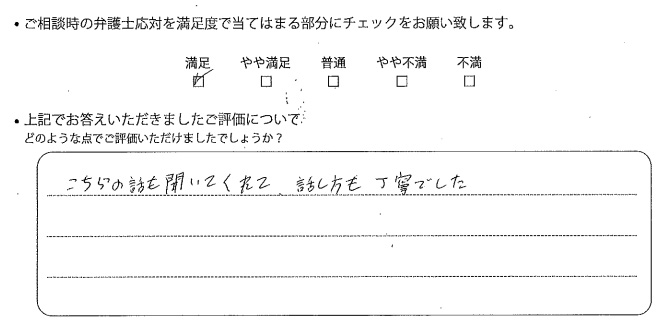 ・ご相談時の弁護士応対を満足度で当てはまる部分にチェックをお願い致します。
満足 やや満足 普通 やや不満 不満
☑ □ □ □ □
・上記でお答えいただきましたご評価について
どのような点でご評価いただけましたでしょうか？
こちらの話も聞いてくれて、話し方も丁寧でした